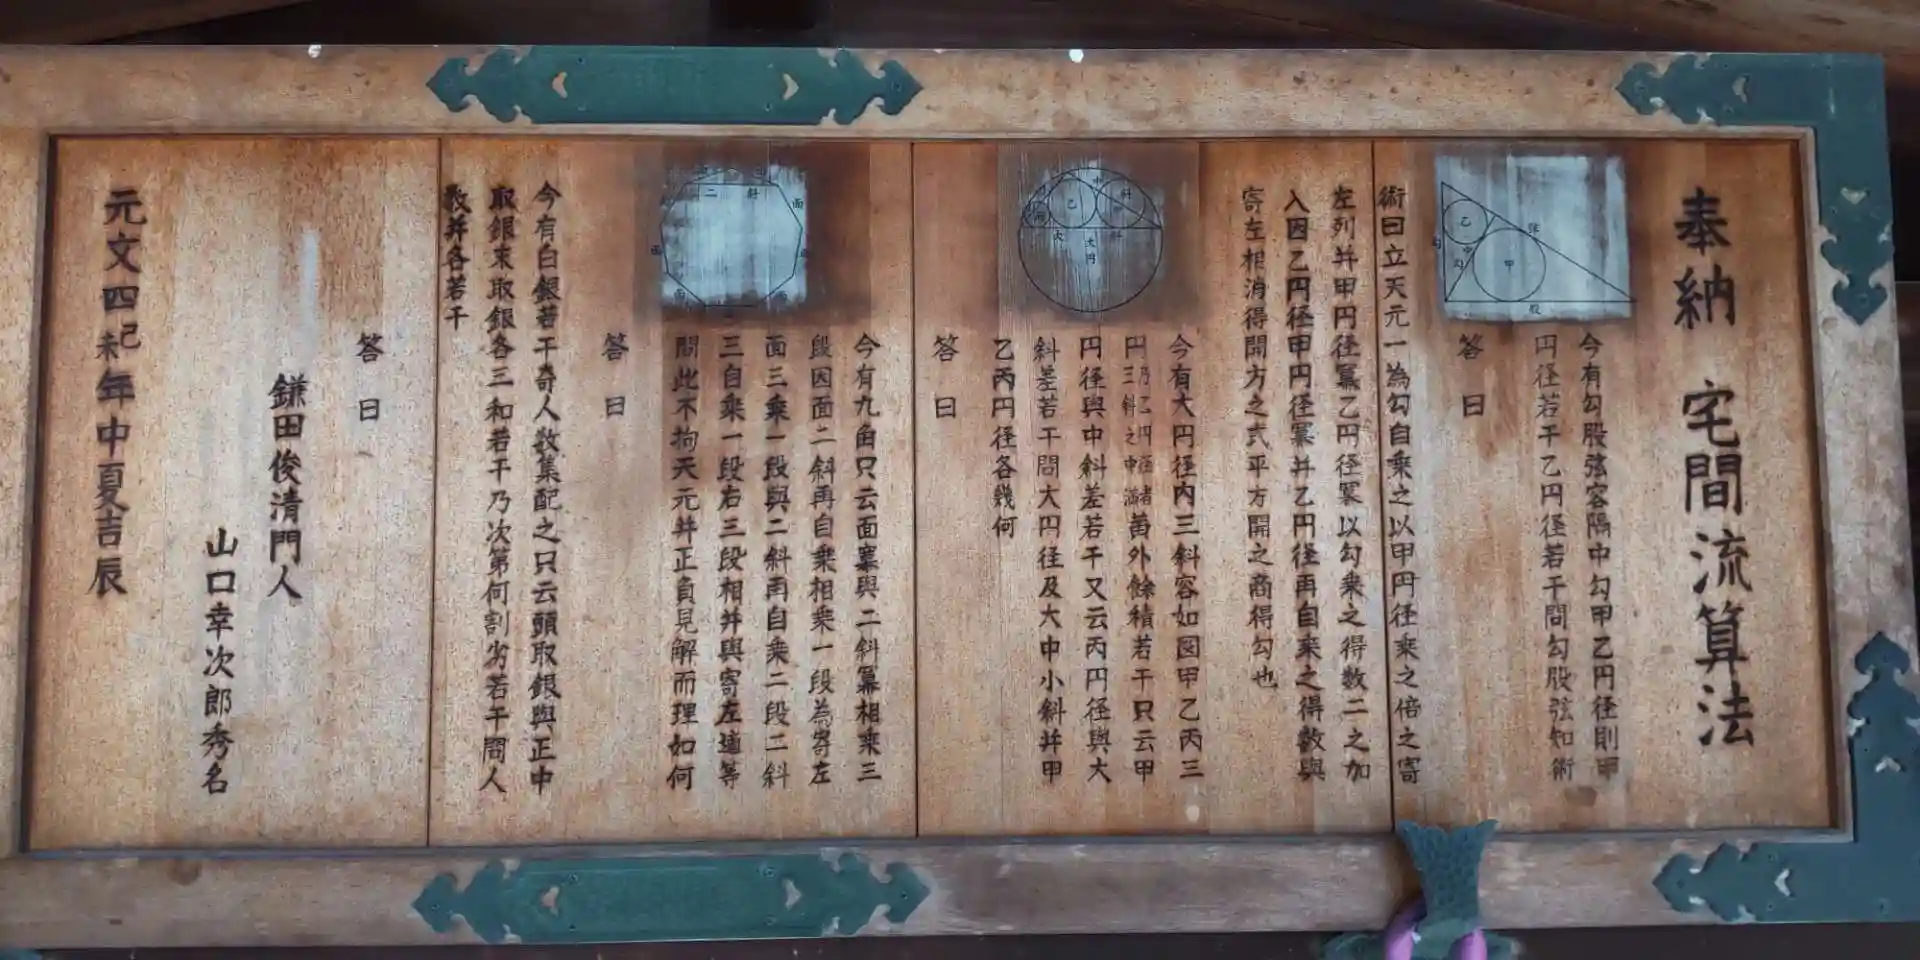 奉納 宅間流算法
今有勾股弦容隔中勾甲乙円径則甲
円径若干乙円径若干問勾股弦知術
答曰
術曰立天元一為勾自乗之以甲円径乗之倍之寄
左列并甲円径冪乙円径冪以勾乗之得数二之加
入因乙円径甲円径冪并乙円径再自乗之得数與
寄左相消得開方之式平方開之商得勾也
乙 中勾 勾 弦 甲 股
今有大円径内三斜容如図甲乙丙三
円 黄外餘積若干只云甲
円径與中斜差若干又云丙円径與大
斜差若干問大円径及大中小斜并甲
乙丙円径各幾何
答曰
乙 丙 大斜 大円 中斜
今有九角只云面冪與二斜冪相乗三
段因面二斜再自乗相乗一段為寄左
面三乗一段與二斜再自乗二段二斜
三自乗一段右三段相并與寄左適等
問此不拘天元并正負見解而理如何
答曰
二斜 面 面 面 面
今有白銀若干奇人数集配之只云頭取銀與正中
取銀末取銀各三和若干乃次第何割劣若干問人
数并各若干
答曰
鎌田俊清門人
山口幸次郎秀名
元文四己未年中夏吉辰